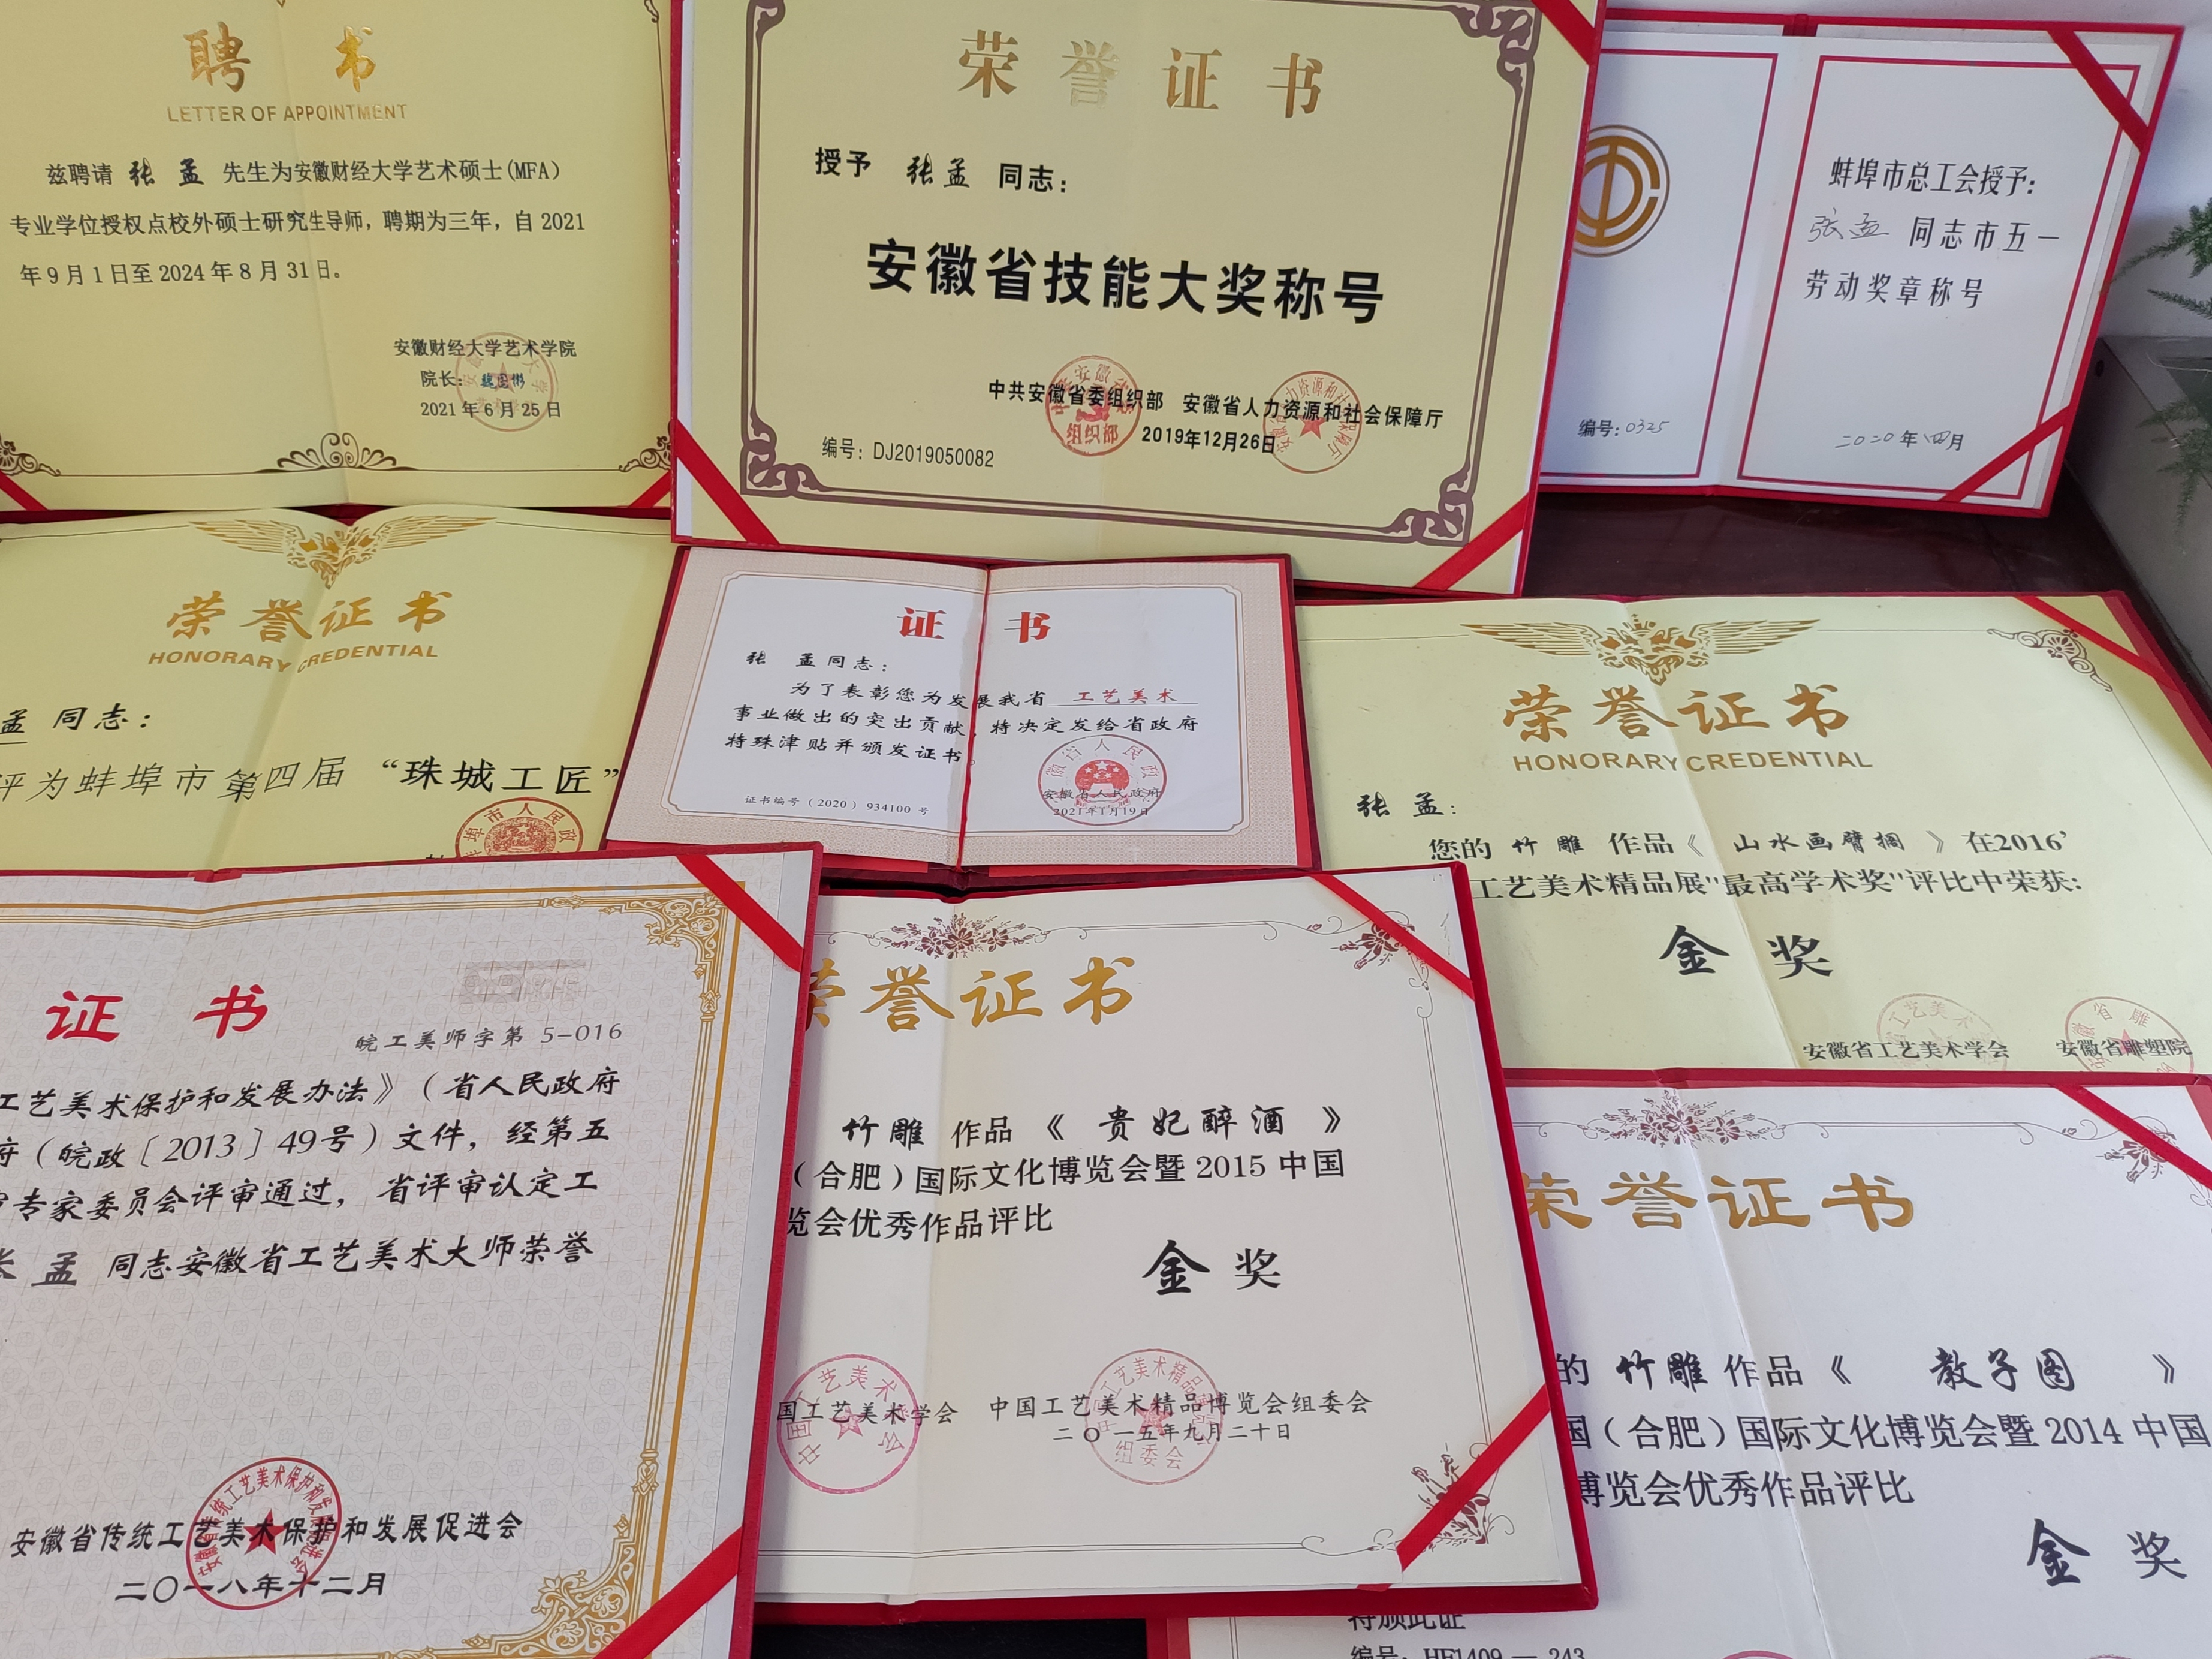 聘 书
LETTER OF APPOINTMENT
兹聘请 张 孟 先生为安徽财经大学艺术硕士(MFA)
专业学位授权点校外硕士研究生导师，聘期为三年，自 2021
年 9 月 1 日至 2024 年 8 月 31 日。
安徽财经大学艺术学院
院长：
2021 年 6 月 25 日
荣誉证书
授予 张孟 同志：
安徽省技能大奖称号
中共安徽省委组织部 安徽省人力资源和社会保障厅
2019年12月26日
编号：DJ2019050082
组织部
蚌埠市总工会授予：
张孟 同志市五一
劳动奖章称号
编号：0325
二〇二〇年 四月
荣誉证书
HONORARY CREDENTIAL
孟 同志：
评为蚌埠市第四届 “珠城工匠”
证 书
张 孟同志：
为了表彰您为发展我省 工艺美术
事业做出的突出贡献，特决定发给省政府
特殊津贴并颁发证书。
证书编号（2020）934100 号
安徽省人民政府
2021年1月19日
荣誉证书
HONORARY CREDENTIAL
张 孟：
您的 竹雕 作品《 山水画臂搁 》在2016'
工艺美术精品展"最高学术奖"评比中荣获：
金 奖
安徽省工艺美术学会 安徽省雕塑院
证 书
皖工美师字第 5-016
工艺美术保护和发展办法》（省人民政府
府（皖政〔2013〕49号）文件，经第五
审专家委员会评审通过，省评审认定工
张 孟 同志安徽省工艺美术大师荣誉
安徽省传统工艺美术保护和发展促进会
二〇一八年十二月
荣誉证书
竹雕 作品《 贵妃醉酒 》
（合肥）国际文化博览会暨 2015 中国
览会优秀作品评比
金 奖
国工艺美术学会 中国工艺美术精品博览会组委会
二〇一五年九月二十日
中国工艺美术学会
组委会
荣誉证书
的 竹雕 作品《 教子图 》
国（合肥）国际文化博览会暨 2014 中国
博览会优秀作品评比
金 奖
特颁此证
编号：HF1409 — 243